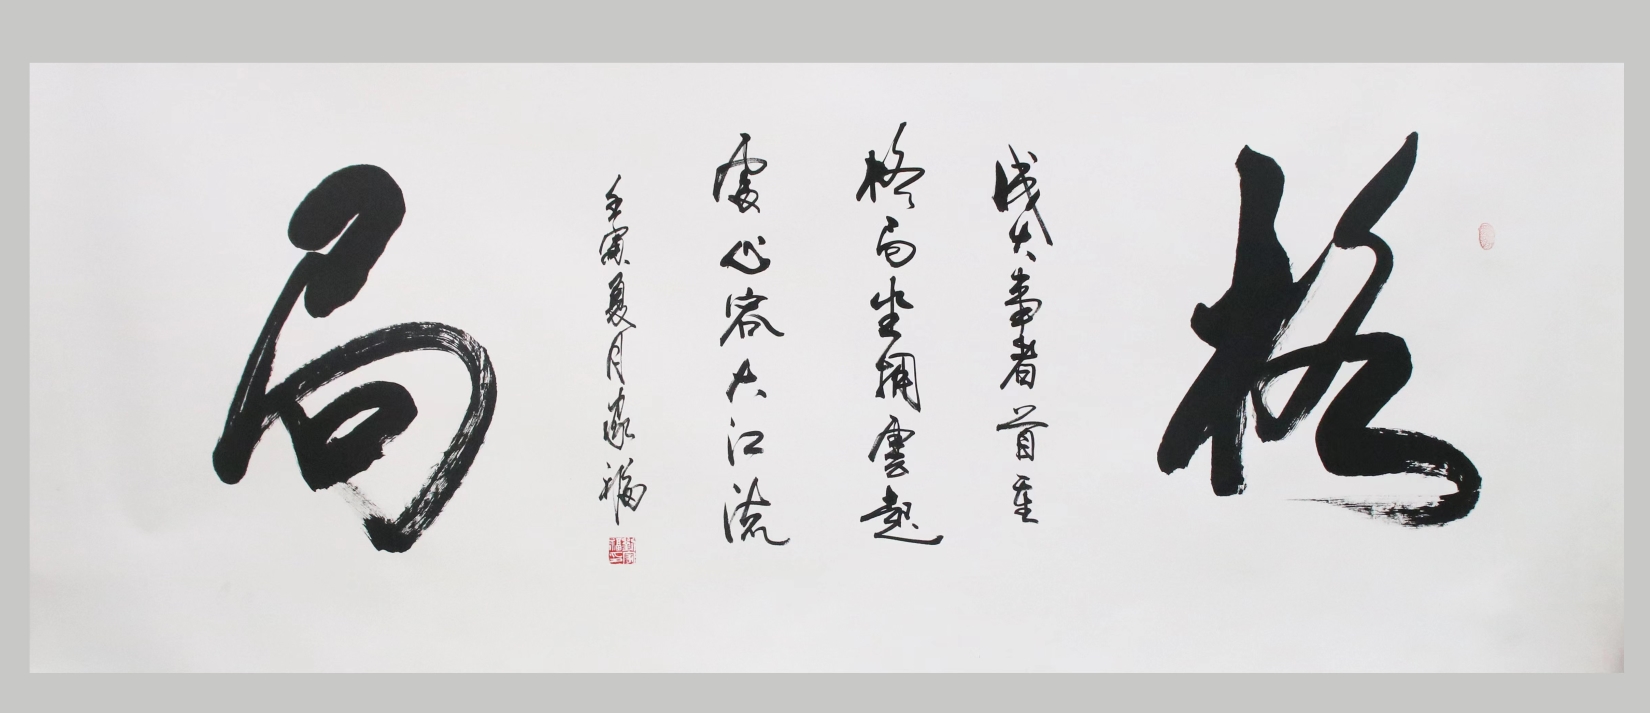 格
成大事者首重
格局坐拥雲起
處心容大江流
壬寅夏月家福
局